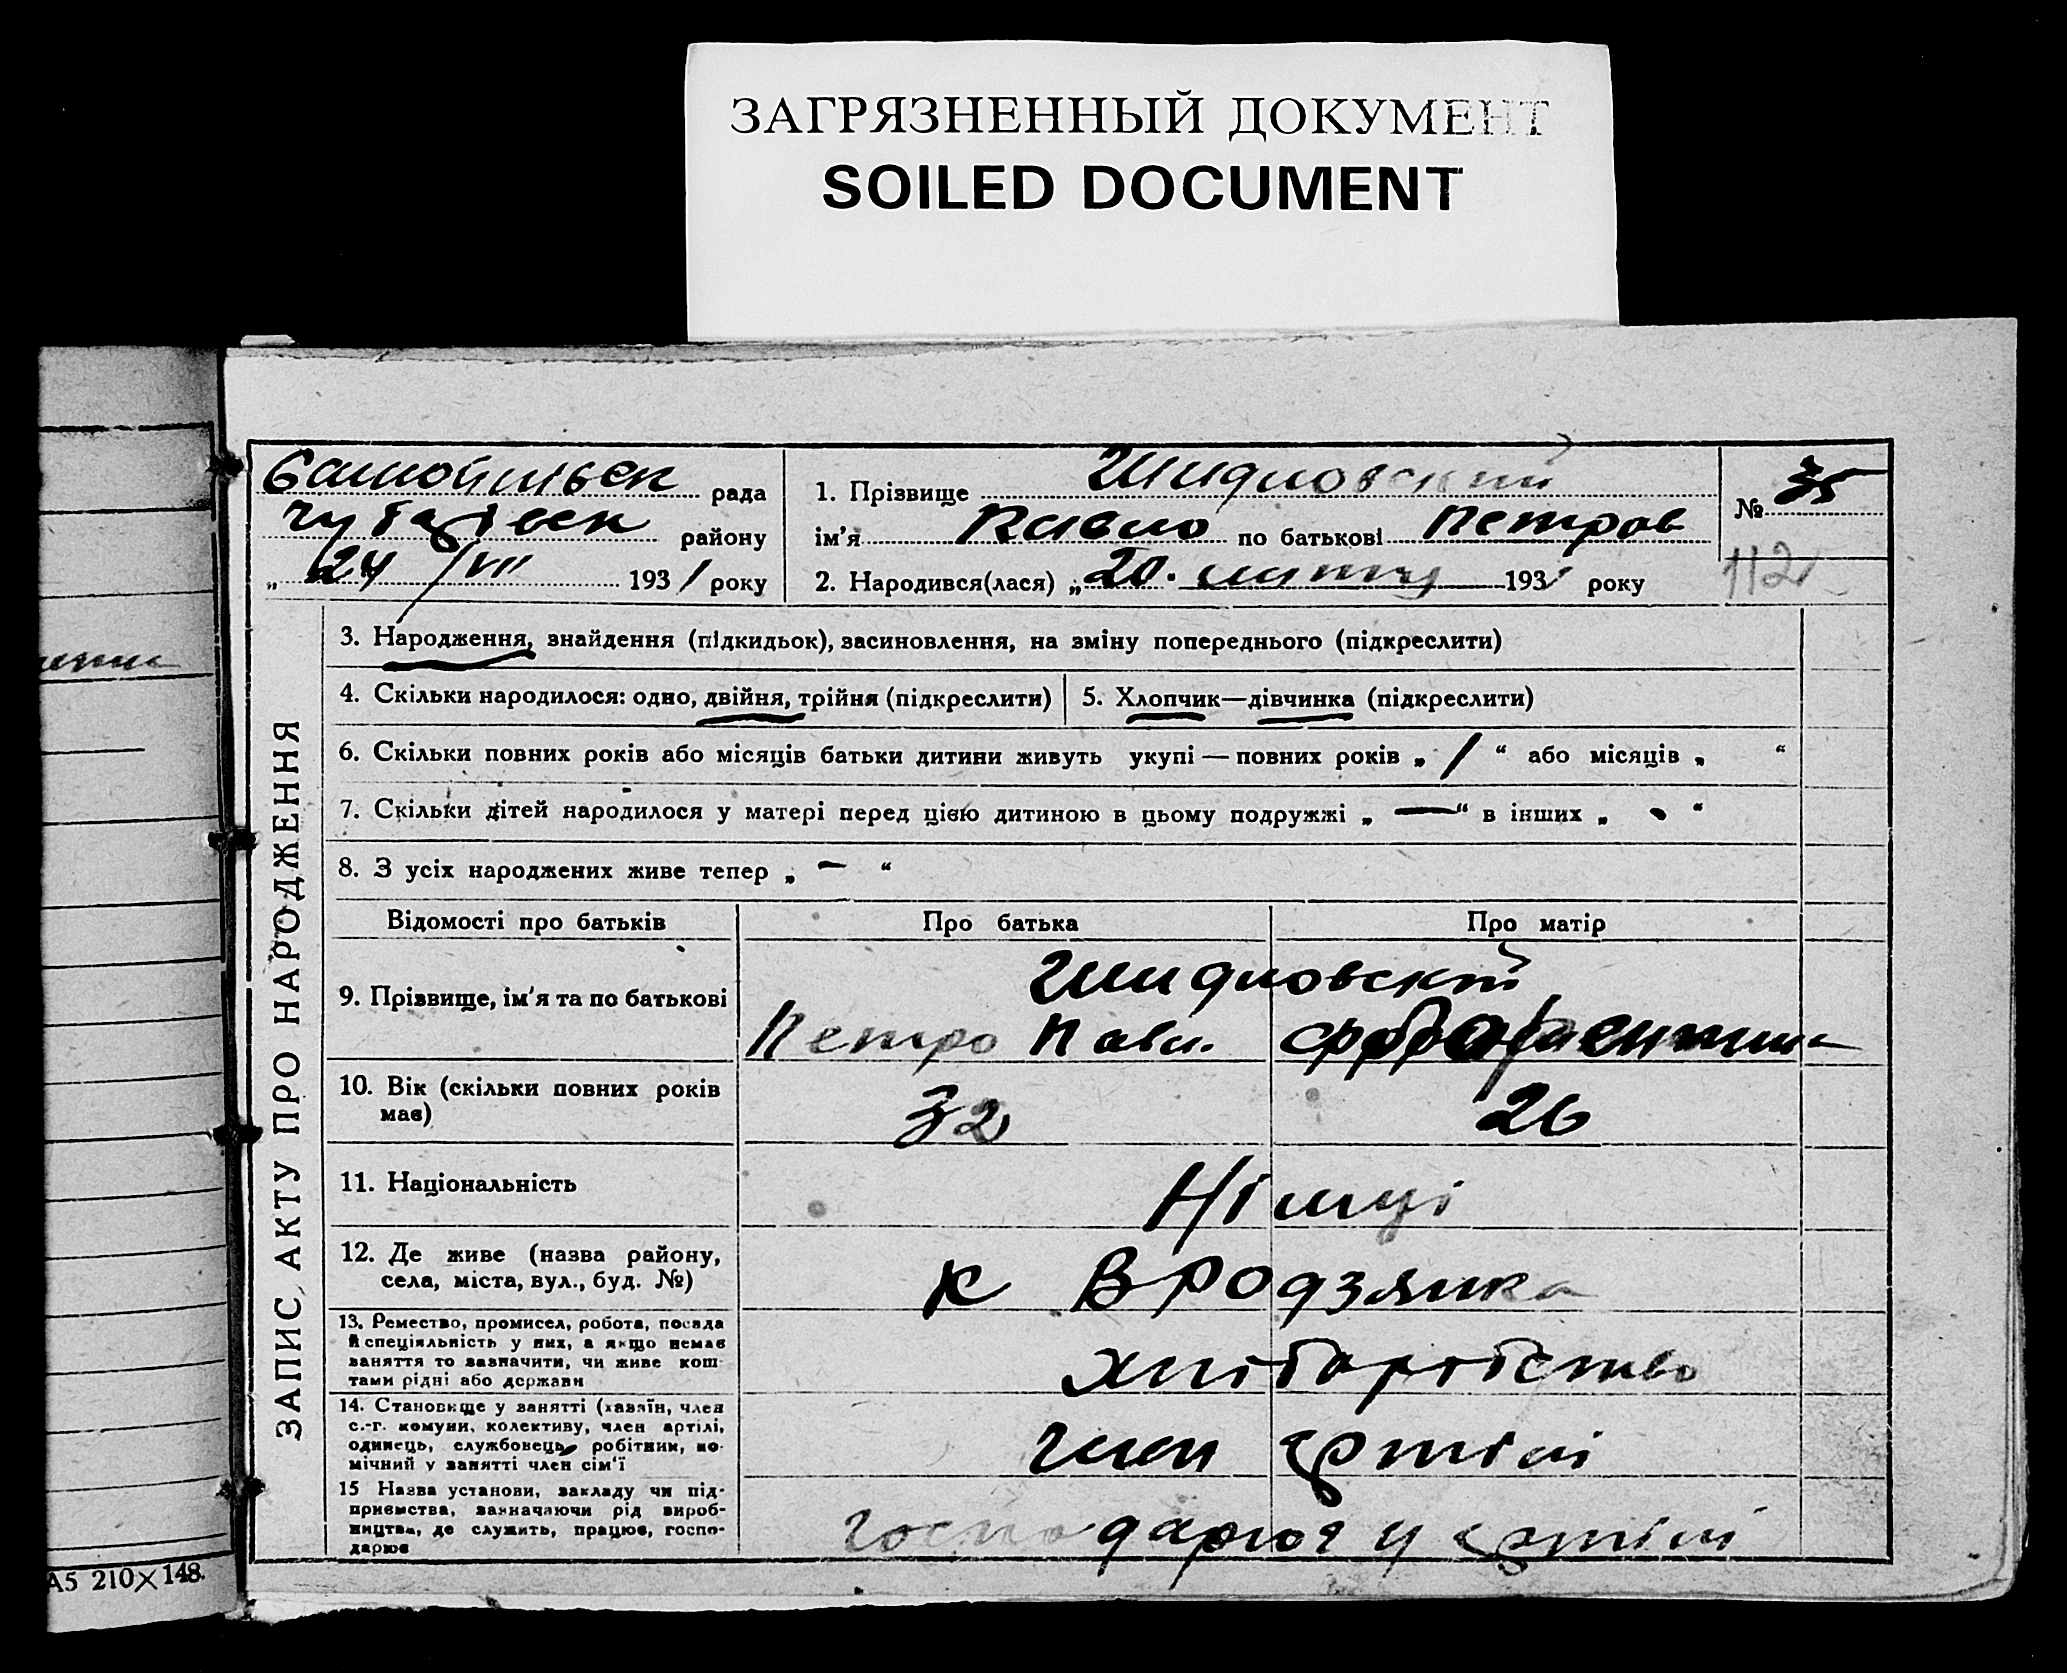 ЗАГРЯЗНЕННЫЙ ДОКУМЕНТ
SOILED DOCUMENT
рада
району
„ 24/VII 1931 року
1. Прізвище Шидловский
ім'я Павло по батькові Петров
2. Народився(лася) „20. лютту 1931 року
№ 35
112
ЗАПИС АКТУ ПРО НАРОДЖЕННЯ
3. Народження, знайдення (підкидьок), засиновлення, на зміну попереднього (підкреслити)
4. Скільки народилося: одно, двійня, трійня (підкреслити)
5. Хлопчик—дівчинка (підкреслити)
6. Скільки повних років або місяців батьки дитини живуть укупі — повних років „ 1 “ або місяців „ “
7. Скільки дітей народилося у матері перед цією дитиною в цьому подружжі „ — “ в інших „ - “
8. З усіх народжених живе тепер „ — “
Відомості про батьків
Про батька
Про матір
9. Прізвище, ім'я та по батькові
Шидловскі
Петро Павл.
10. Вік (скільки повних років
має)
32
26
11. Національність
Німці
12. Де живе (назва району,
села, міста, вул., буд. №)
к В Родзянка
13. Ремество, промисел, робота, посада
й спеціяльність у них, а якщо немає
заняття то зазначити, чи живе кош-
тами рідні або держави
хліборобство
14. Становище у занятті (хазяїн, член
с.-г. комуни, колективу, член артілі,
одинець, службовець, робітник, по-
мічний у занятті член сім'ї
член артілі
15 Назва установи, закладу чи під-
приємства, зазначаючи рід вироб-
ництва, де служить, працює, госпо-
дарює
господарює у артілі
А5 210×148.